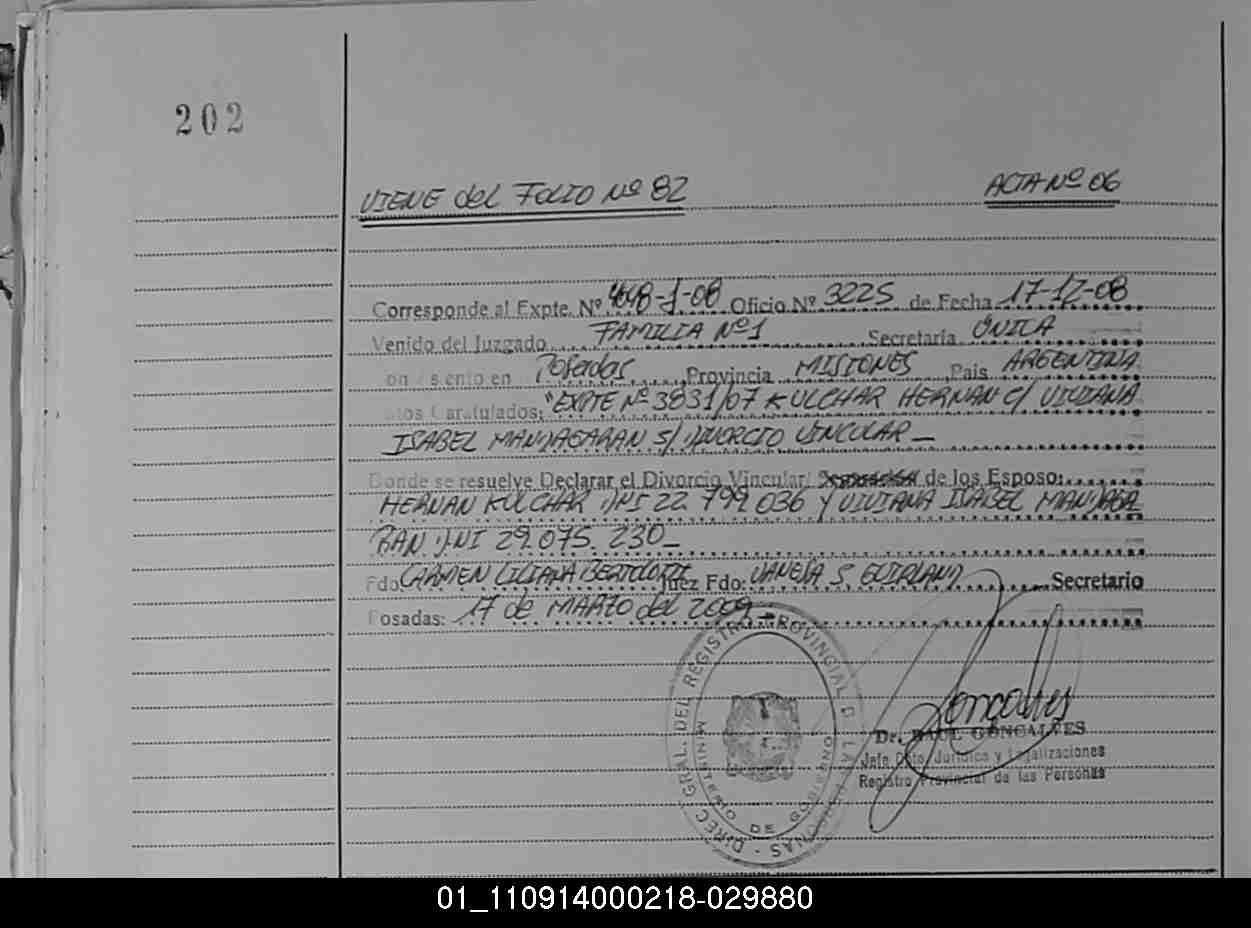 202
VIENE del FOLIO Nº 82
ACTA Nº 06
Corresponde al Expte. Nº 4698-J-08 Oficio Nº 3225 de Fecha 17-12-08
Venido del Juzgado FAMILIA Nº 1 Secretaria ÚNICA
con asiento en Posadas Provincia MISIONES Pais ARGENTINA
Autos Caratulados: "EXPTE Nº 3831/07 KULCHAR HERNAN C/ VIVIANA
ISABEL MANDAGARAN S/ DIVORCIO VINCULAR_
Donde se resuelve Declarar el Divorcio Vincular/ de los Esposo:
HERNAN KULCHAR DNI 22 799 036 Y VIVIANA ISABEL MANDAGA
RAN DNI 29.075.230_
Fdo: CARMEN LILIANA Juez Fdo: VANESA S. Secretario
Posadas: 17 de MARZO del 2009_
DIREC. GRAL. DEL REGISTRO PROVINCIAL D LAS PERSONAS -
MINISTERIO DE GOBIERNO
Goncalves
Dr. RAUL GONCALVES
Jefe Dpto. Jurídica y Legalizaciones
Registro Provincial de las Personas
01_110914000218-029880